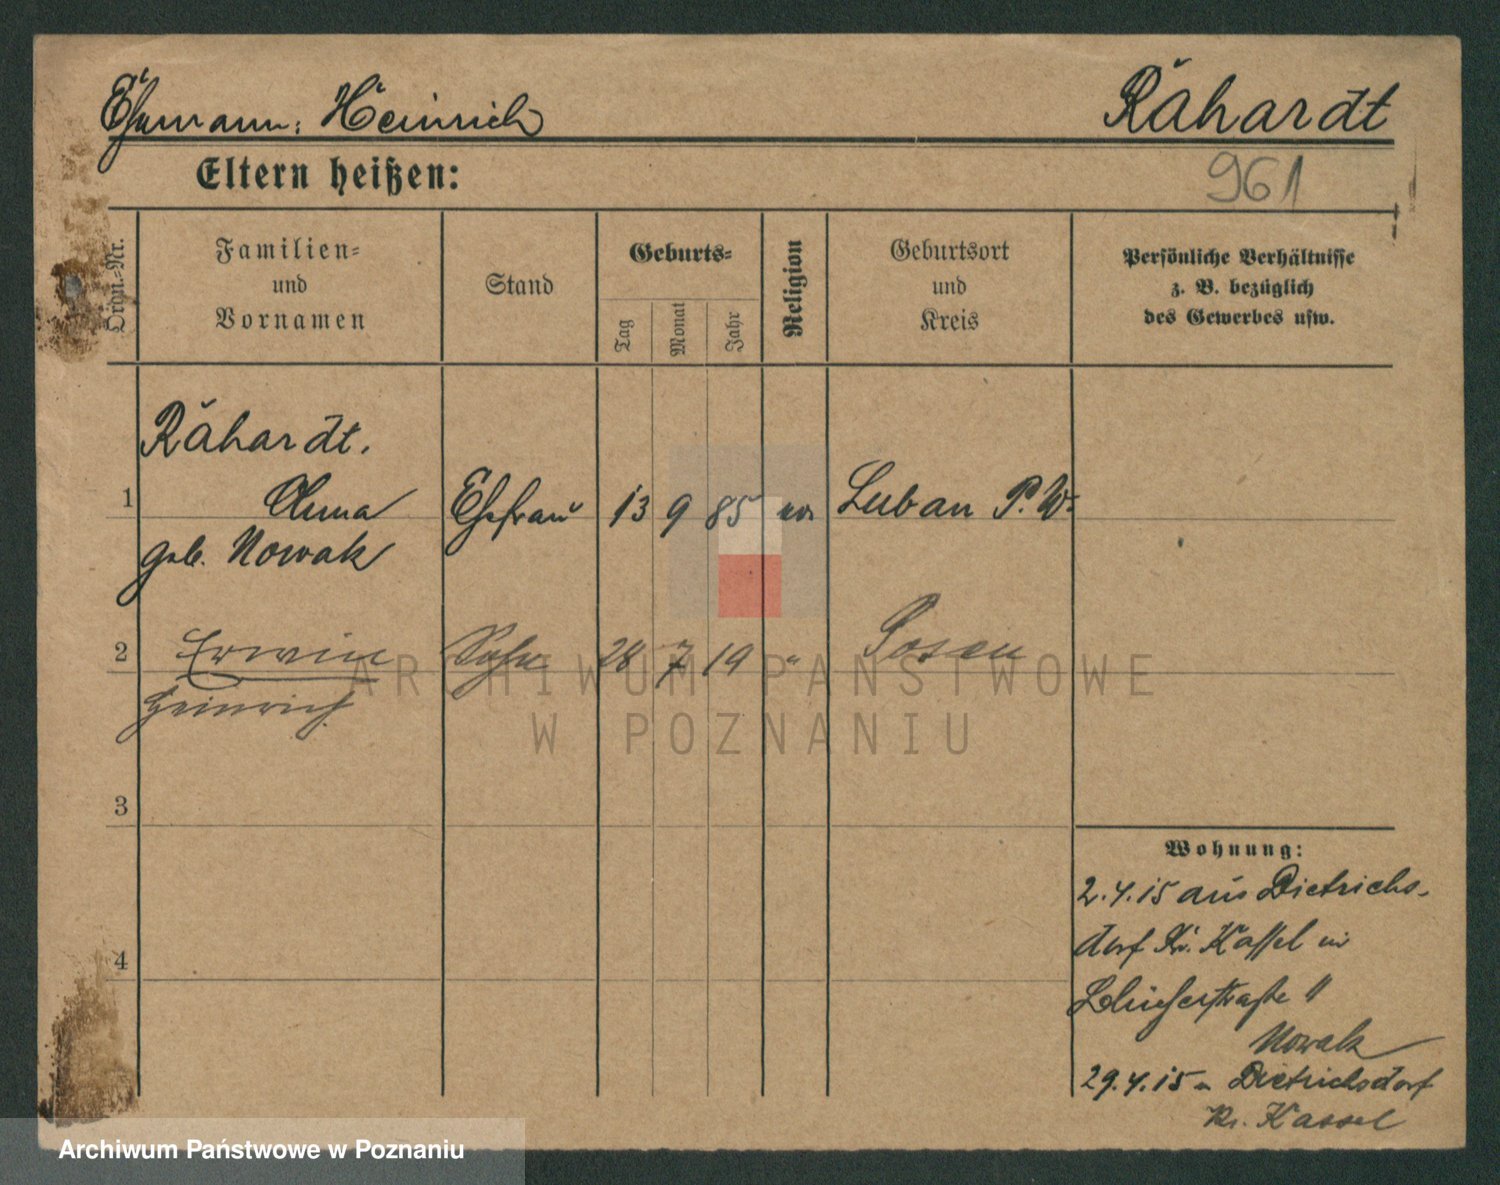 Ehemann: Heinrich Rähardt
961
Eltern heißen:
Ordn.=Nr.
Familien=
und
Vornamen
Stand
Geburts=
Tag
Monat
Jahr
Religion
Geburtsort
und
Kreis
Persönliche Verhältnisse
z. B. bezüglich
des Gewerbes usw.
Rähardt.
1 Anna Ehefrau 13 9 85 Luban P. W.
geb. Nowak
2 Erwin Sohn 28 7 19 " Posen
Heinrich
3
4
Wohnung:
2.4.15 aus Dietrichs-
dorf Kr. Kassel in
11
Nowak
29.4.15 n. Dietrichsdorf
Kr. Kassel
ARCHIWUM PAŃSTWOWE
W POZNANIU
Archiwum Państwowe w Poznaniu